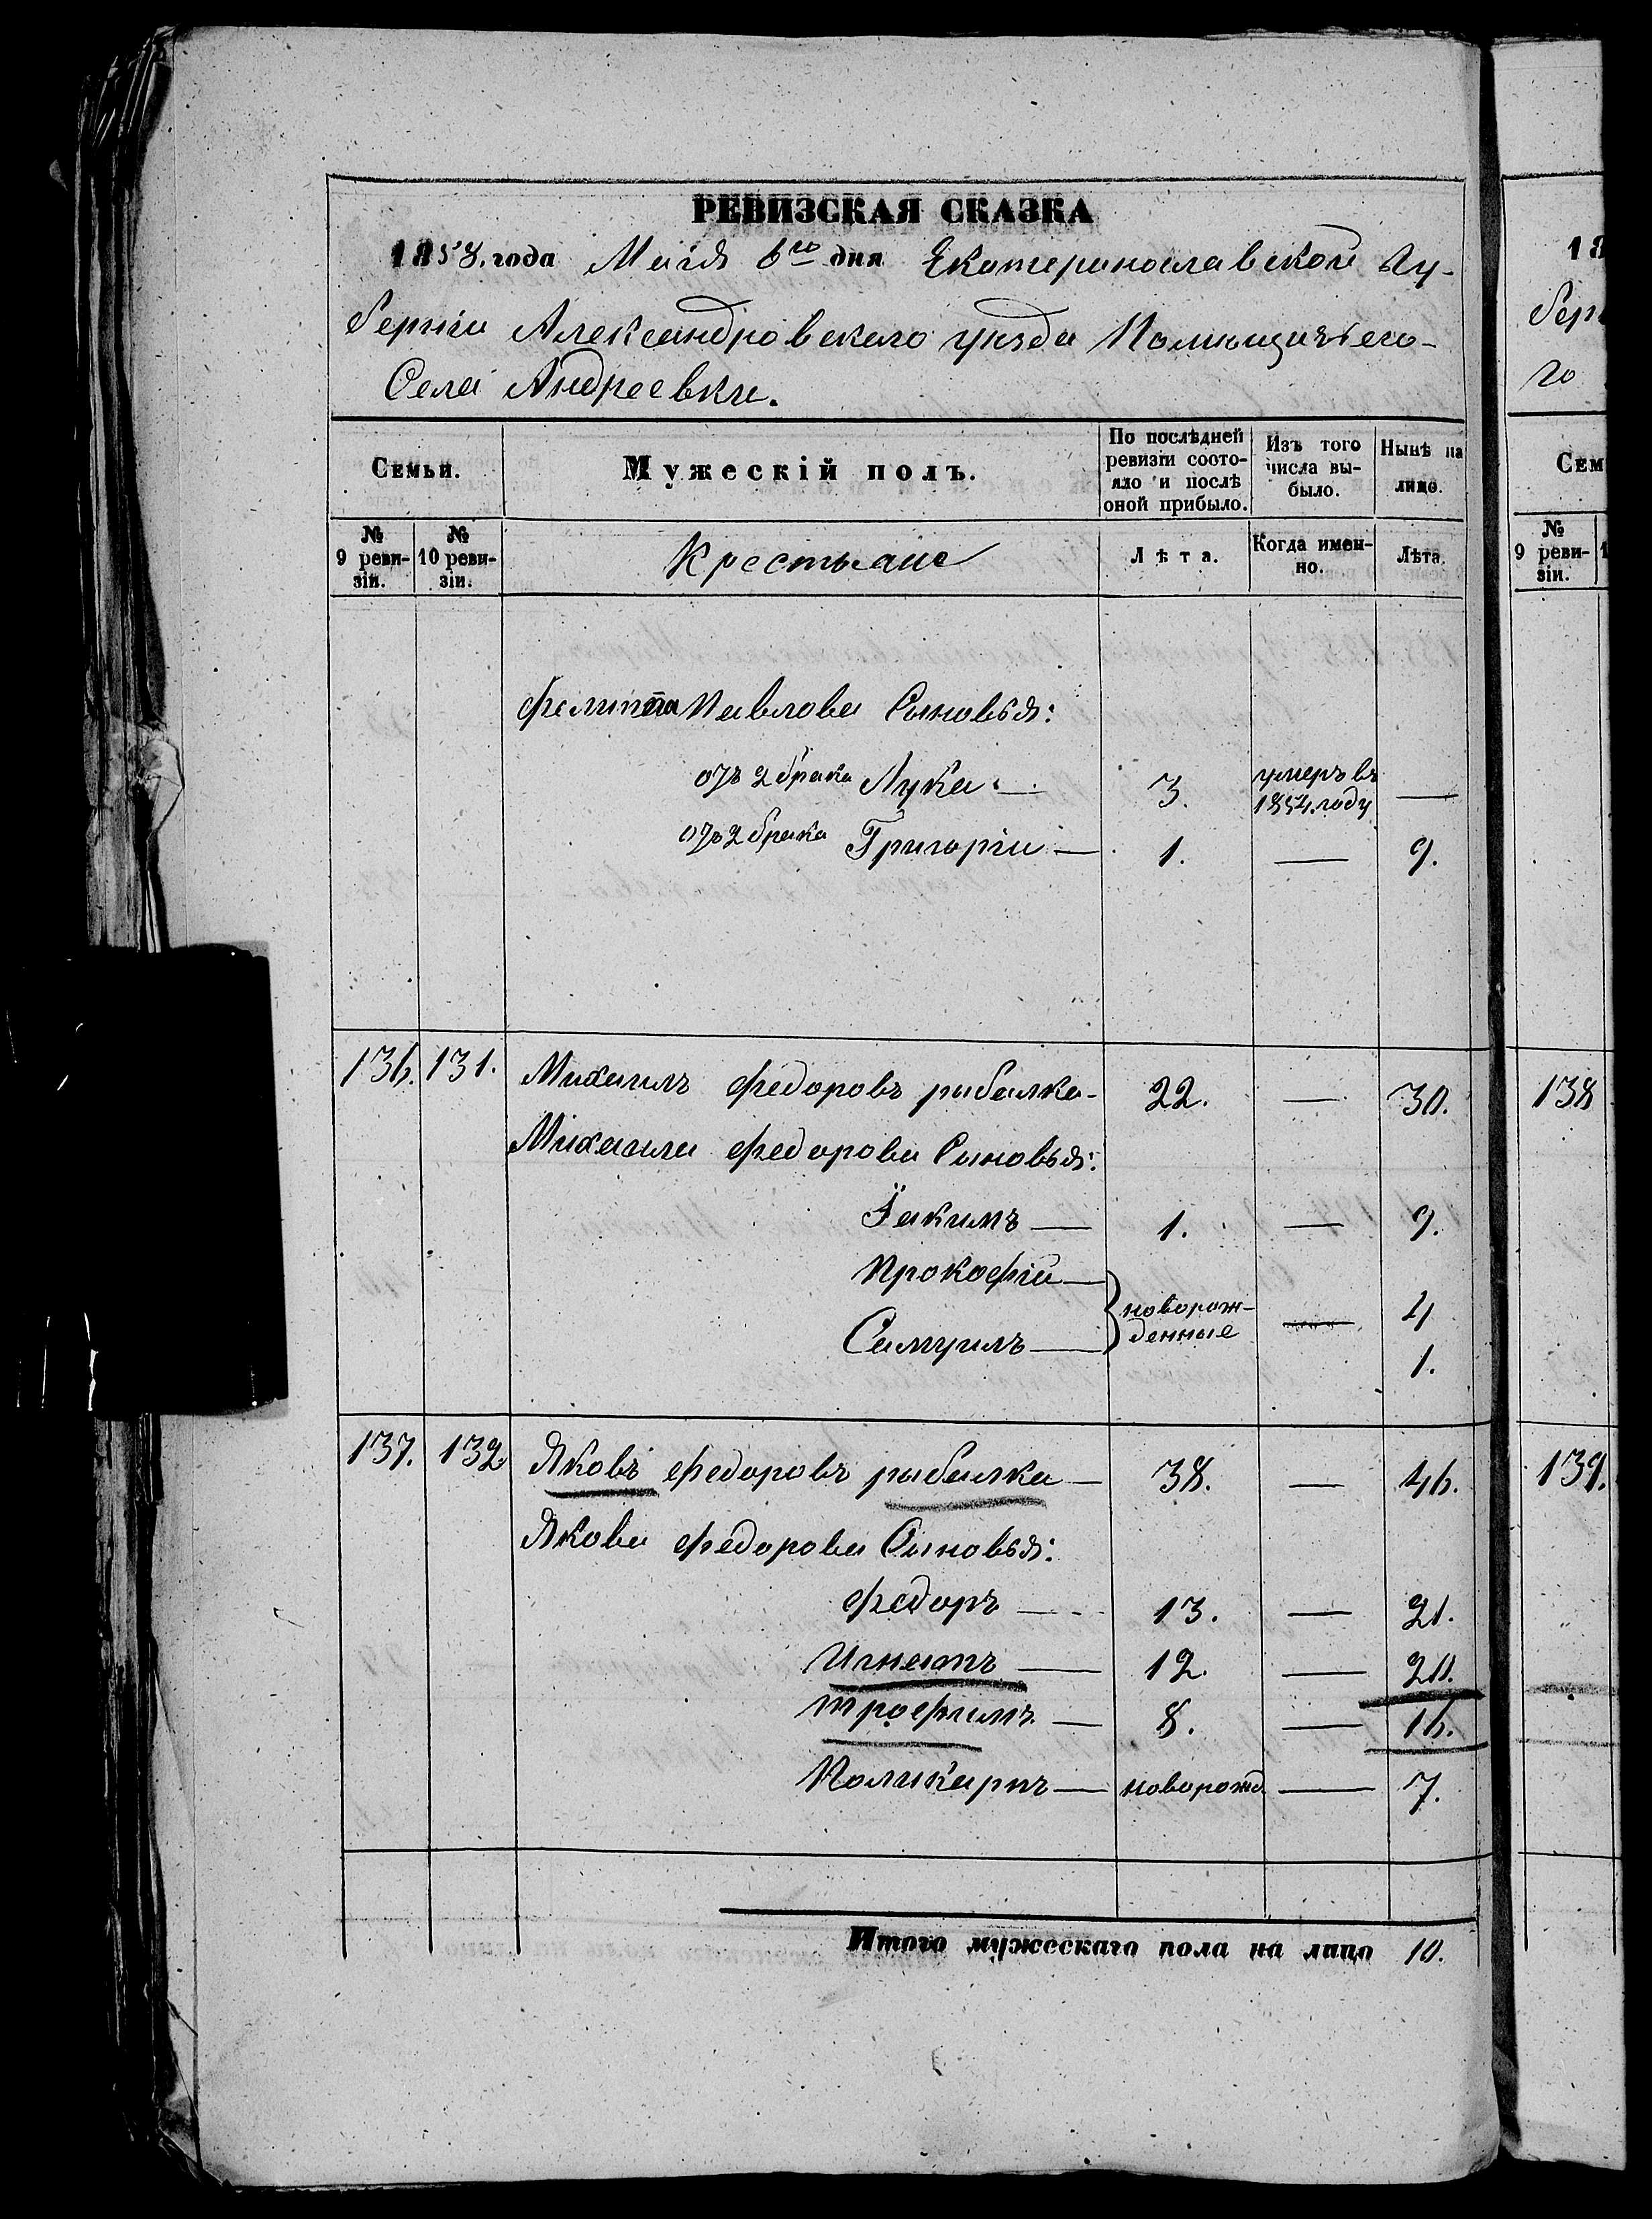 РЕВИЗСКАЯ СКАЗКА
1858. года Маія 6го дня Екатеринославской Гу-
берніи Александровскаго уѣзда Помѣщичьего
Села Андреевки.
Семьи. Мужескій полъ. По послѣдней ревизіи состояло и послѣ оной прибыло. Изъ того числа выбыло. Нынѣ на лицо.
№ 9 ревизіи. № 10 ревизіи. Крестьяне Лѣта. Когда именно. Лѣта.
Филиппа Павлова Сыновья:
отъ 2 брака Лука — 3. умеръ въ 1854. году —
отъ 2 брака Григорій — 1. — 9.
136. 131. Михаилъ Федоровъ рыбалка- 22. — 30.
Михаила Федорова Сыновья:
Іакимъ — 1. — 9.
Прокофій — новорож- 4
Самуилъ — денные — 1.
137. 132 Яковъ Федоровъ рыбалка — 38. — 46.
Якова Федорова Сыновья:
Федоръ — 13. — 21.
Игнатъ — 12. — 20.
Трофимъ — 8. — 16.
Поликарпъ — новорожд — 7.
Итого мужескаго пола на лицо 10.
18
бер
го
Сем
№ 9 ревизіи. 1
138
139.